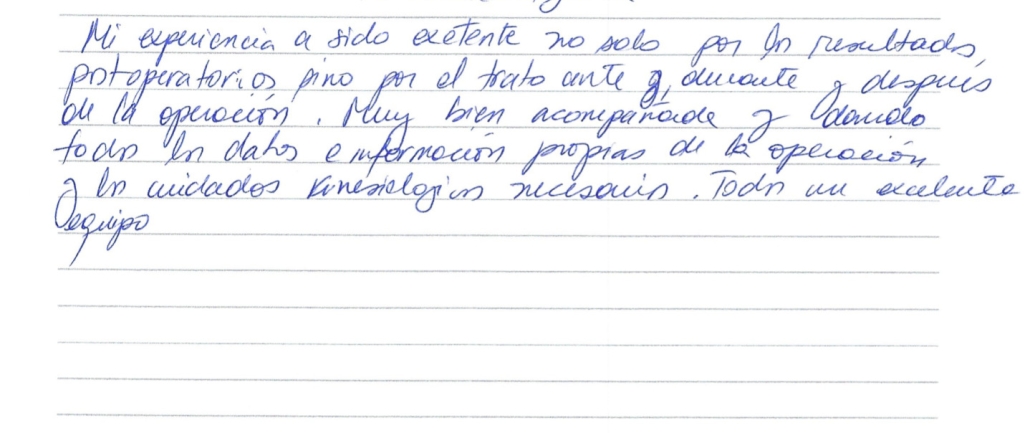 Mi experiencia a sido exelente no solo por los resultados,
postoperatorios sino por el trato ante y, durante y después
de la operación. Muy bien acompañada y dando
todos los datos e información propias de la operación
y los cuidados kinesiologicos necesarios. Todos un excelente
equipo